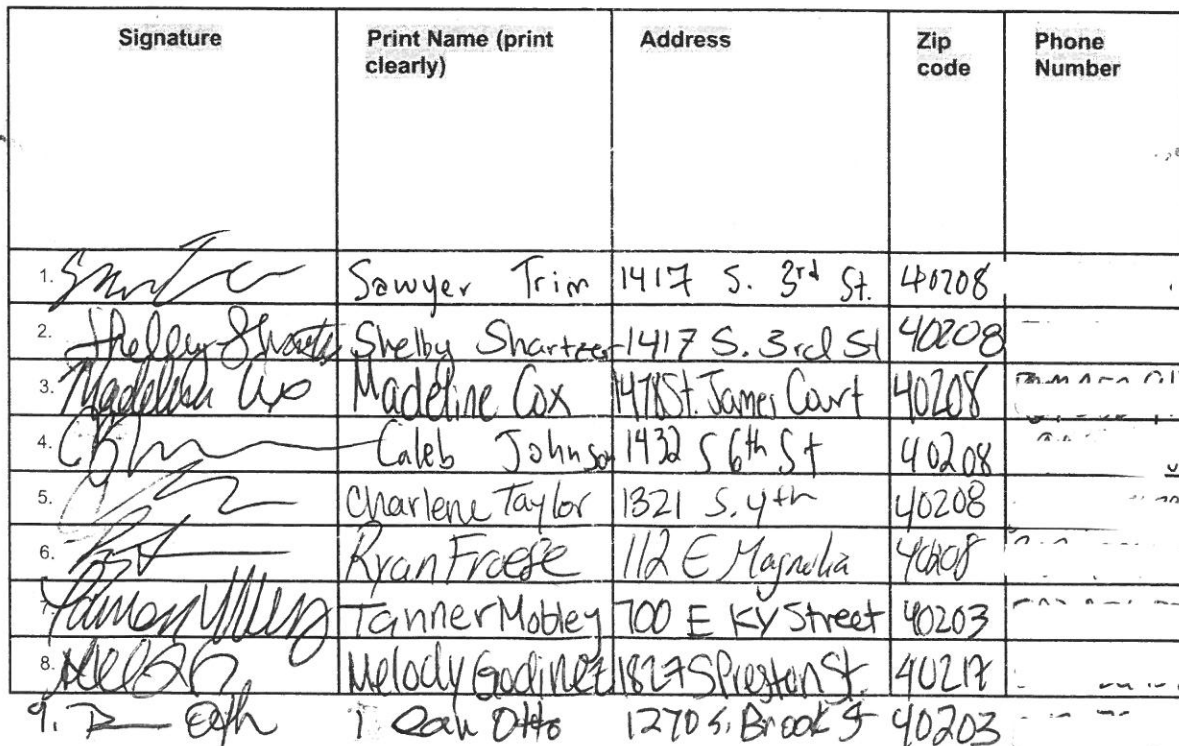 Signature Print Name (print clearly) Address Zip code Phone Number
1. Sawyer Trim 1417 S. 3rd St. 40208
2. Shelby Shartzer 1417 S. 3rd St 40208
3. Madeline Cox Madeline Cox 1478 St. James Court 40208
4. Caleb Johnson 1432 S 6th St 40208
5. Charlene Taylor 1321 S. 4th 40208
6. Ryan Froese 112 E Magnolia 40208
Tanner Mobley 700 E KY Street 40203
8. Melody Godinez 1827 S Preston St. 40217
9. Otto 1270 S. Brook St 40203